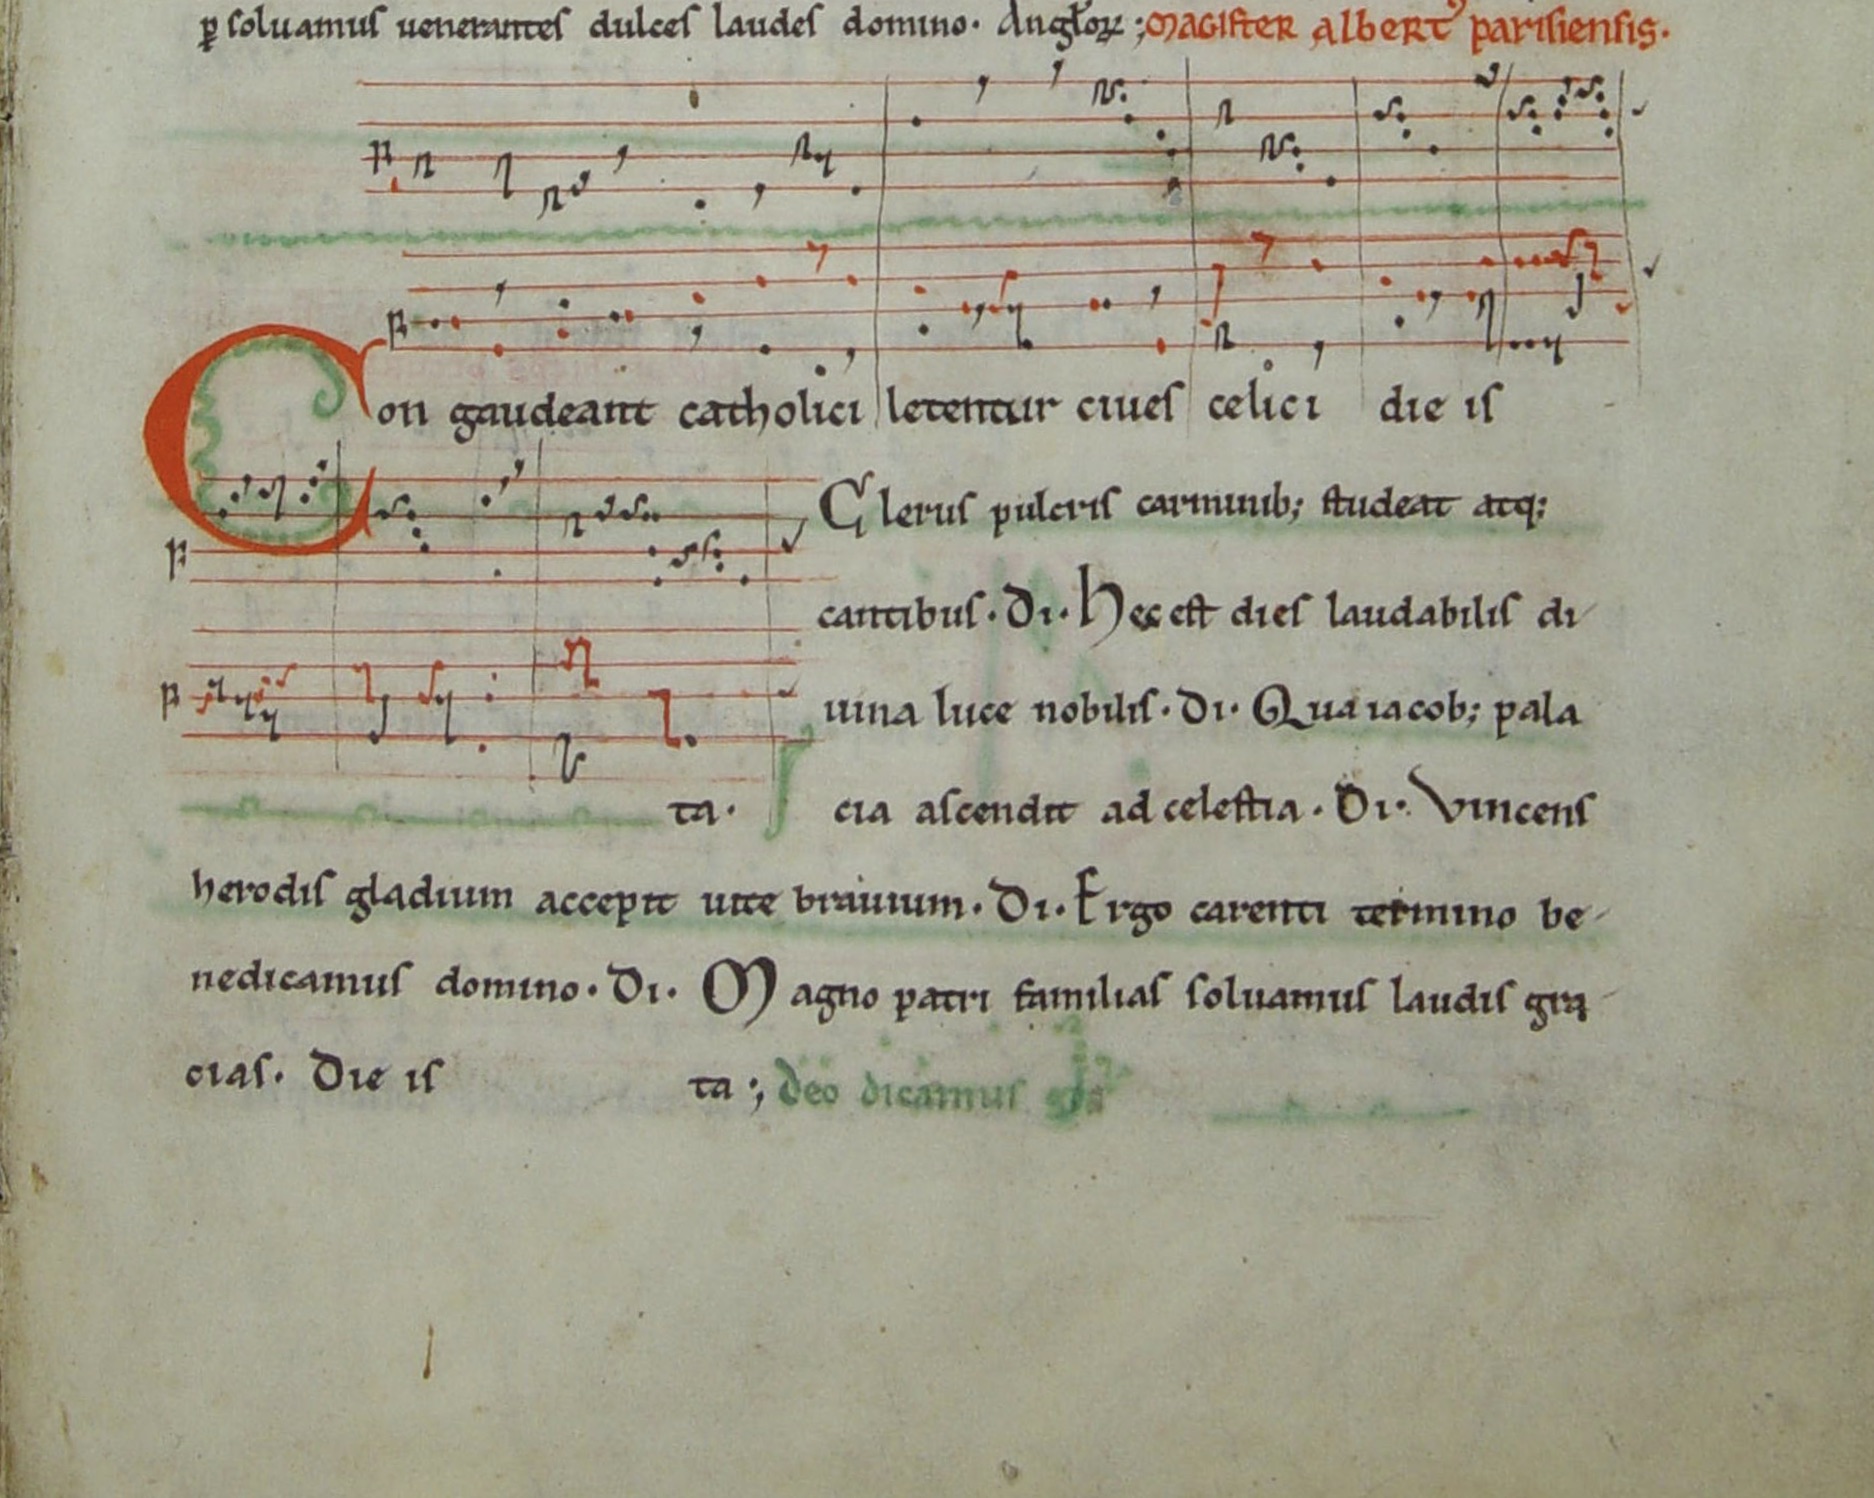 ꝑ soluamus uenerantes dulces laudes domino. Angłoꝝ; Magister albertꝰ parisiensis.
Con gaudeant catholici letentur ciues celici die is
ta.
Clerus pulcris carminib; studeat atq;
cantibus. Di. Hec est dies laudabilis di
uina luce nobilis. Di. Qua iacob; pala
cia ascendit ad celestia. Di. Vincens
herodis gladium accepit uite brauium. Di. Ergo carenti termino be
nedicamus domino. Di. Magno patri familias soluamus laudis gra
cias. Die is ta; deo dicamus